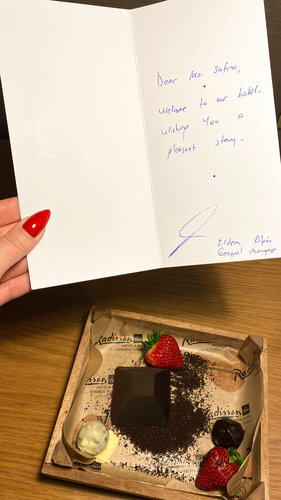 Dear Mrs. Safina,
Welcome to our hotel.
Wishing you a
pleasant stay.
Erdem
General Manager
Radisson
Radisson
Radisson
Radisson